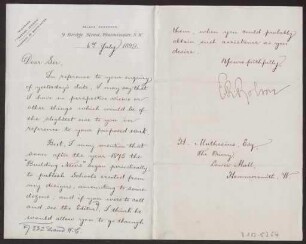 9 Bridge Street, Westminster, S.W.
6th July 1896
Dear Sir,
In reference to your enquiry
of yesterday's date, I may say that
I have no perspective views or
other things which would be of
the slightest use to you in
reference to your proposed work.
But, I may mention that some
time after the year 1875 the
"Building News" began periodically
to publish Schools erected from
my designs, amounting to some
dozens, and if you were to call
and see the Editor, I think he
would allow you to go through
332 Strand W.C.
them, when you could probably
obtain such assistance as you
desire
Yours faithfully,
E R Robson
H. Muthesius, Esq
The Priory
Lower Mall,
Hammersmith. W.